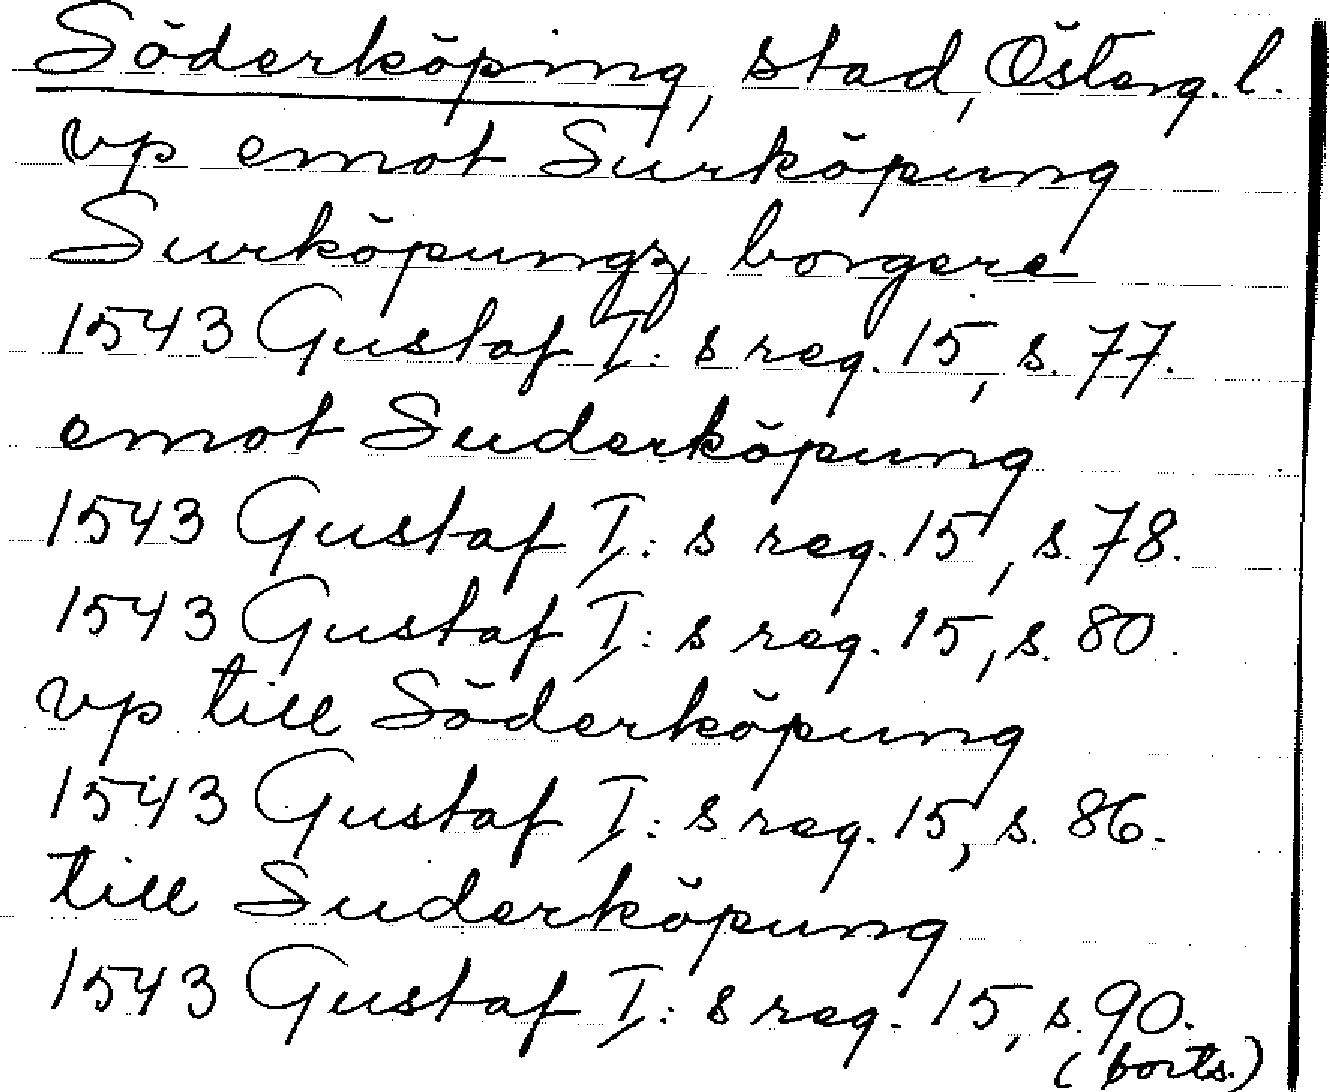 Söderköping, stad, Österg. l.
vp emot Surköpung
Surköpungz borgere
1543 Gustaf I: s reg. 15, s. 77.
emot Suderköpung
1543 Gustaf I: s reg. 15, s. 78.
1543 Gustaf I: s reg. 15, s. 80.
vp till Söderköpung
1543 Gustaf I: s reg. 15, s. 86.
till Suderköpung
1543 Gustaf I: s reg. 15, s. 90.
(forts.)